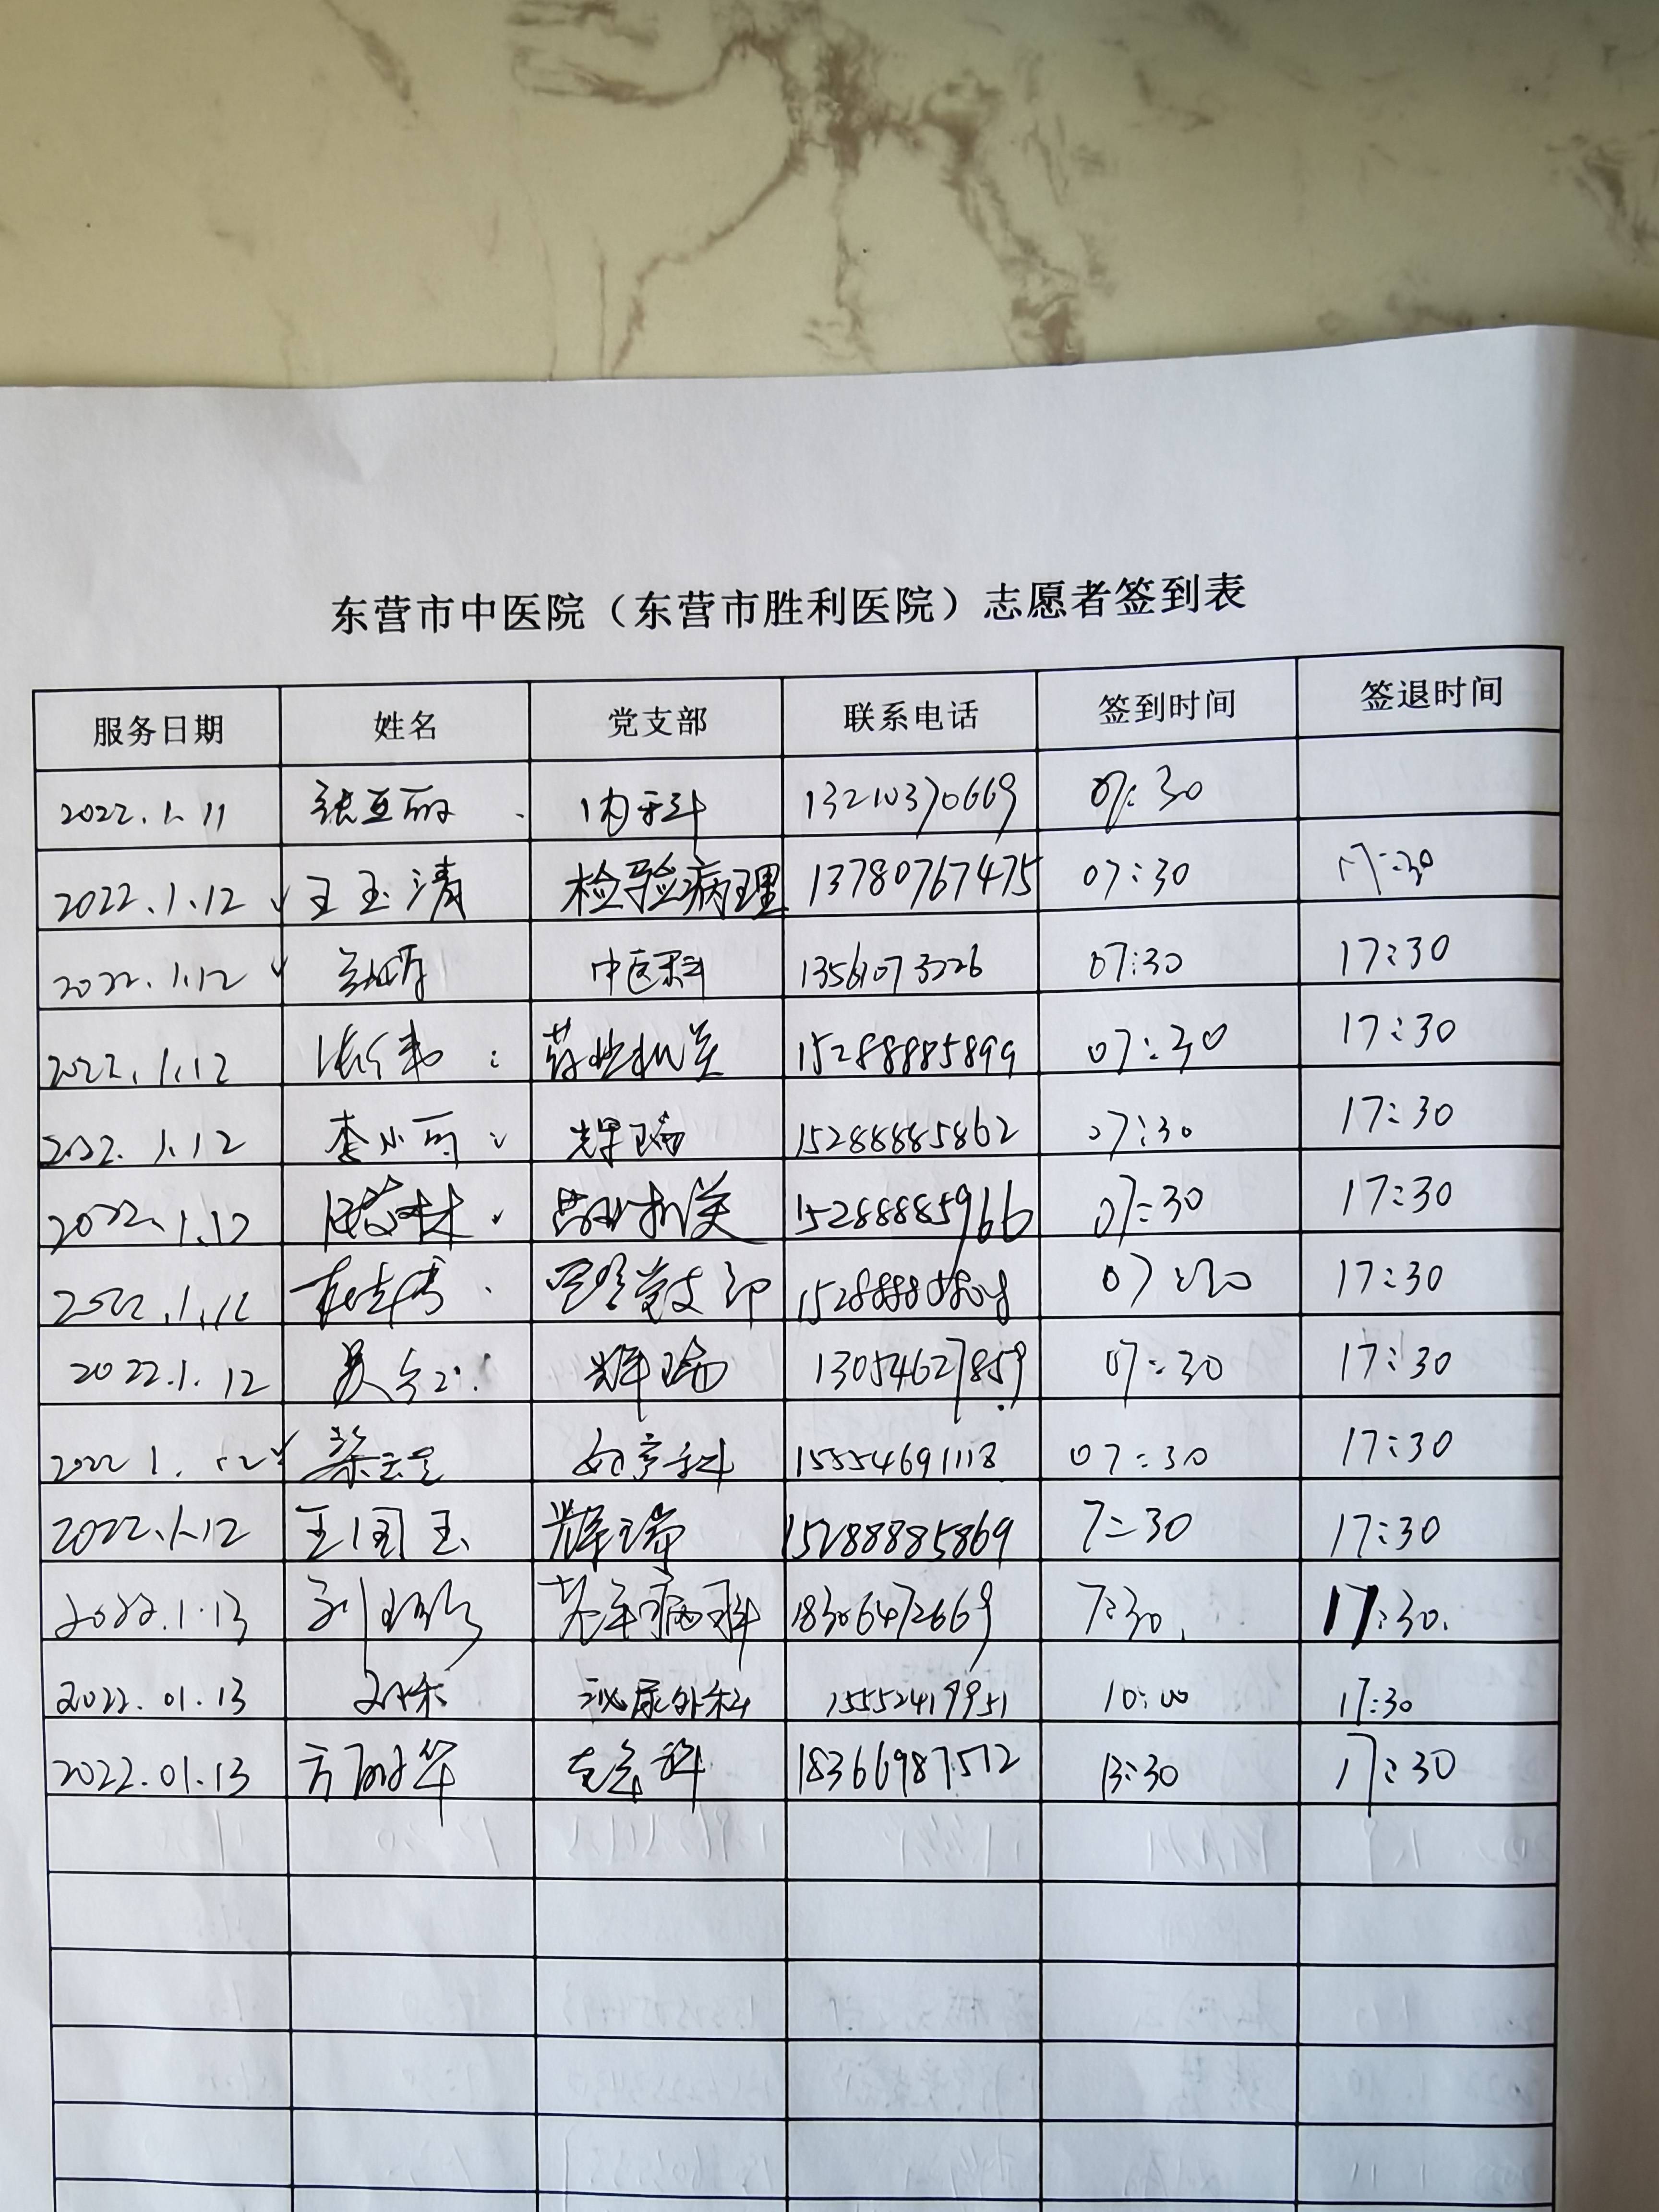 东营市中医院（东营市胜利医院）志愿者签到表
服务日期 姓名 党支部 联系电话 签到时间 签退时间
2022.1.11 张亚丽 内科 13210370669 07:30
2022.1.12 王玉清 检验病理 13780767475 07:30 17:30
2022.1.12 中医科 13561073226 07:30 17:30
2022.1.12 药业机关 15288885899 07:30 17:30
2022.1.12 李小可 辉瑞 15288885862 07:30 17:30
2022.1.12 药业机关 15288885966 07:30 17:30
2022.1.12 党支部 07:30 17:30
2022.1.12 辉瑞 13054627859 07:30 17:30
2022 1.12 妇产科 15554691118 07:30 17:30
2022.1.12 王国玉 辉瑞 15288885869 7:30 17:30
2022.1.13 老年病科 18306472669 7:30 17:30.
2022.01.13 泌尿外科 15552419951 10:00 17:30
2022.01.13 方丽华 18366987512 13:30 17:30